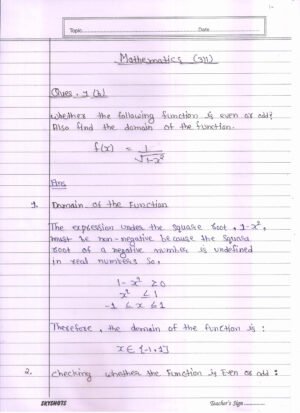 1.
Topic
Date
Mathematics (311)
Ques. 1 (b)
whether the following function is even or odd?
Also find the domain of the function.
f(x) = 1/√1-x²
Ans
1. Domain of the Function
The expression under the square root, 1-x²,
must be non-negative because the square
root of a negative number is undefined
in real numbers So,
1 - x² ≥ 0
x² ≤ 1
-1 ≤ x ≤ 1
Therefore, the domain of the function is :
x ∈ [-1, 1]
2. Checking whether the Function is Even or odd :
SKYSHOTS
Teacher's Sign